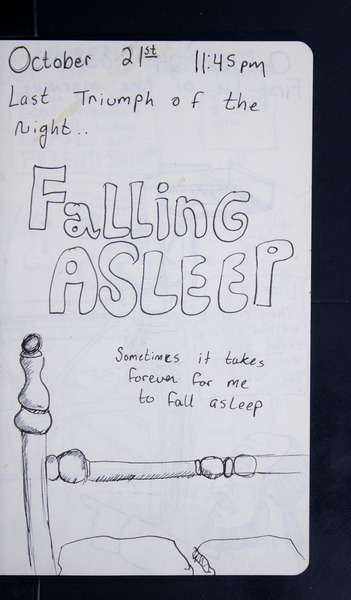 October 21st 11:45pm
Last Triumph of the
Night..
Falling
ASLEEP
Sometimes it takes
forever for me
to fall asleep